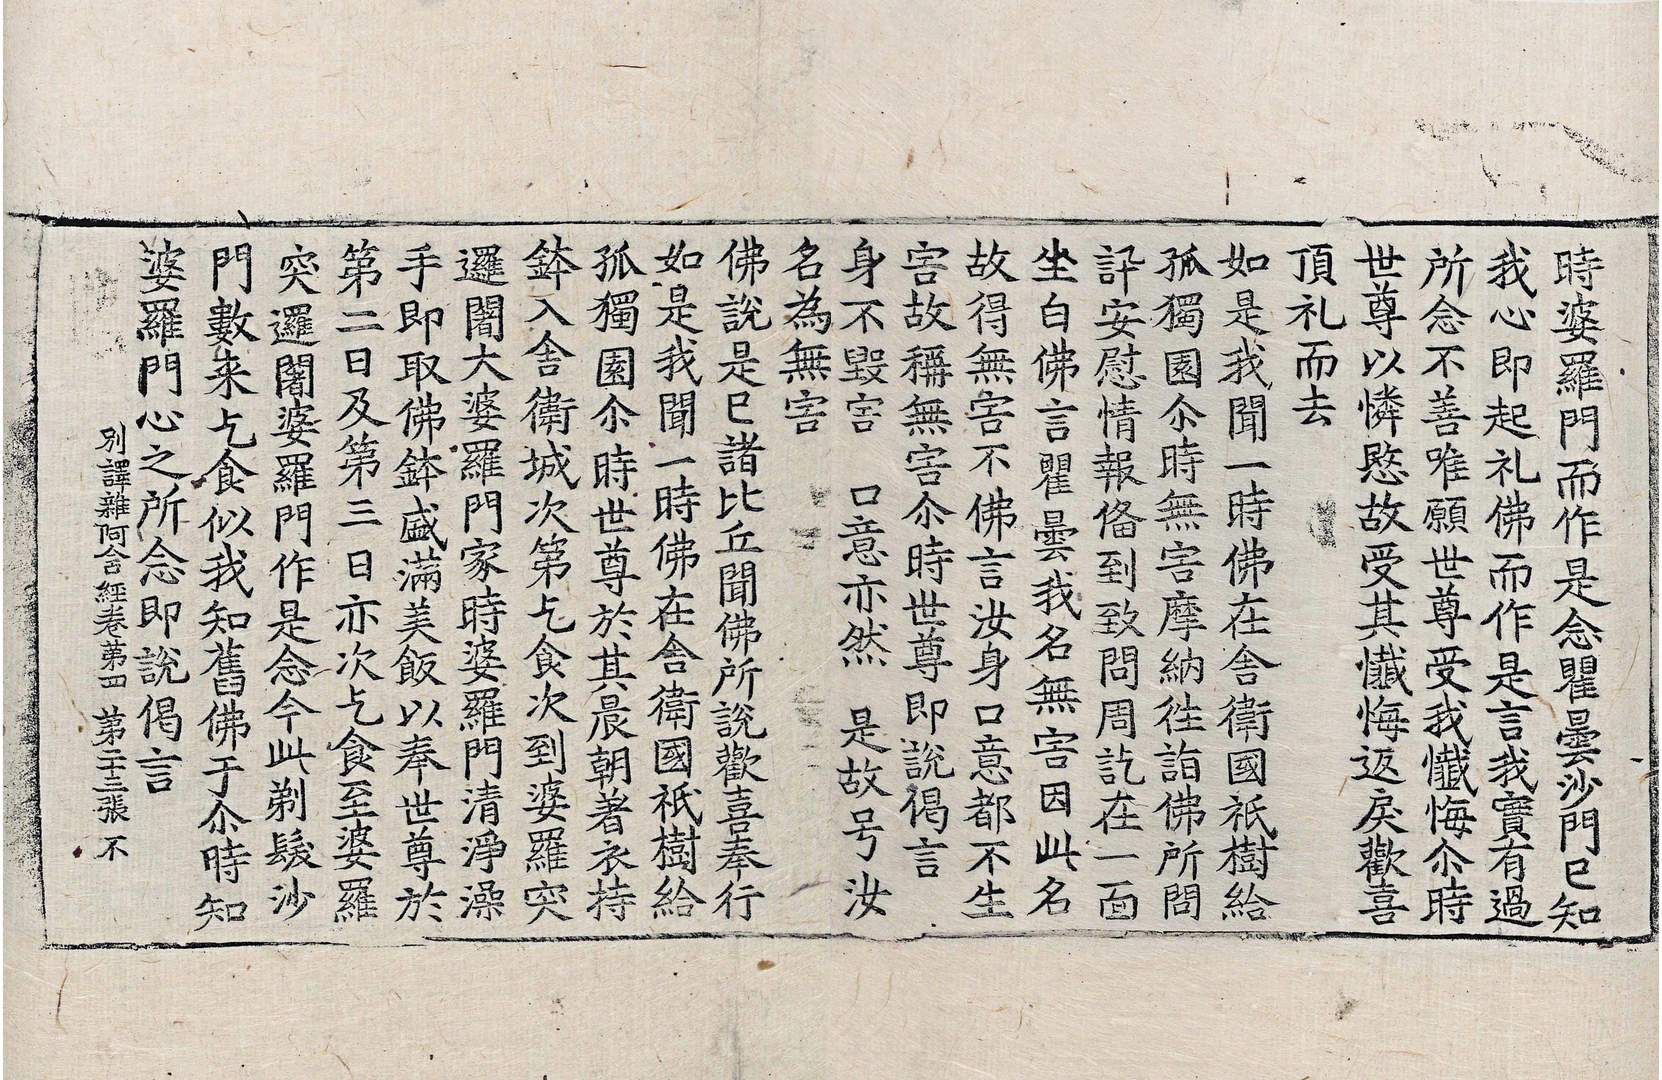 時婆羅門而作是念瞿曇沙門已知
我心即起礼佛而作是言我實有過
所念不善唯願世尊受我懺悔尒時
世尊以憐愍故受其懺悔返戾歡喜
頂礼而去
如是我聞一時佛在舍衛國祇樹給
孤獨園尒時無害摩納徃詣佛所問
訊安慰情報俻到致問周訖在一面
坐白佛言瞿曇我名無害因此名
故得無害不佛言汝身口意都不生
害故稱無害尒時世尊即說偈言
身不毀害　口意亦然　是故号汝
名為無害
佛說是已諸比丘聞佛所說歡喜奉行
如是我聞一時佛在舍衛國祇樹給
孤獨園尒時世尊於其晨朝著衣持
鉢入舍衛城次第乞食次到婆羅突
邏闍大婆羅門家時婆羅門清淨澡
手即取佛鉢盛滿美飯以奉世尊於
第二日及第三日亦次乞食至婆羅
突邏闍婆羅門作是念今此剃髮沙
門數来乞食似我知舊佛于尒時知
婆羅門心之所念即說偈言
別譯雜阿含經卷苐四　苐二十三張　不